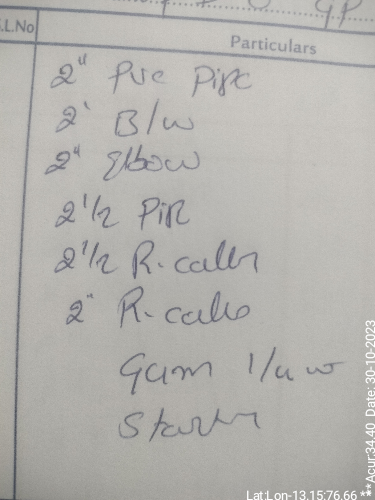 S.L.No
Particulars
2" Pvc Pipe
2' B/w
2" Elbow
2 1/2 Pipe
2 1/2 R-caller
2" R-calle
Gum
Starter
Lat:Lon-13.15:76.66 ***Acur:34.40 Date: 30-10-2023